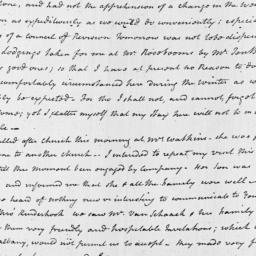 done, and had not the apprehension of a change in the wea
on as expeditiously as we could do conveniently; especial
of a Council of Revision tomorrow was not to be dispen
Lodgings taken for me at Mr. Roseboom's by Mr. Jenk
good ones; so that I have at present no reason to do
comfortably circumstanced here during the winter as co
ly be expected. For tho' I shall not, and cannot forget
home; yet I flatter myself that my stay here will not be in
le
called after church this morning at Mrs. Watkins. she was
one to another church— I intended to repeat my visit this
till this moment been engaged by Company. Her Son was
and informed me that she & all the family were well—
heard of nothing new or interesting to communicate to you
thro' Kinderhook we saw Mr. Van Schaack & his family
them very friendly and hospitable Invitations; which
Albany, would not permit us to accept. they made very f